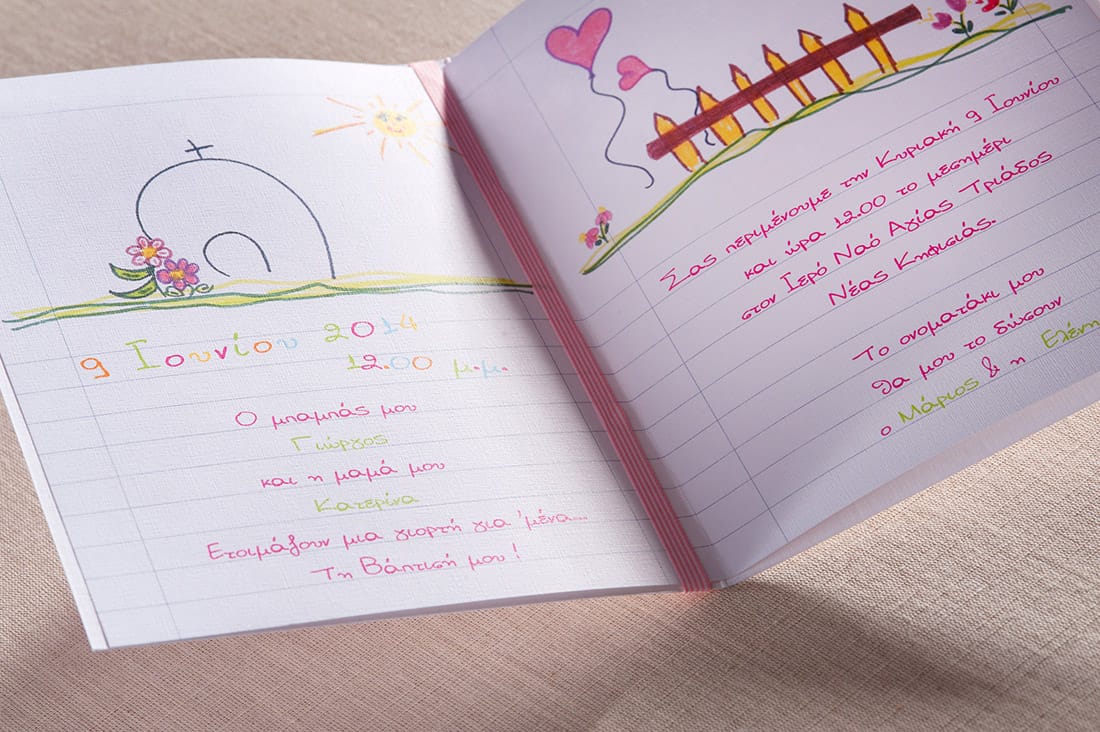 9 Ιουνίου 2014
12.00 μ.μ.
Ο μπαμπάς μου
Γιώργος
και η μαμά μου
Κατερίνα
Ετοιμάζουν μια γιορτή για 'μένα...
Τη Βάπτισή μου !
Σας περιμένουμε την Κυριακή 9 Ιουνίου
και ώρα 12.00 το μεσημέρι
στον Ιερό Ναό Αγίας Τριάδος
Νέας Κηφισιάς.
Το ονοματάκι μου
θα μου το δώσουν
ο Μάριος & η Ελένη